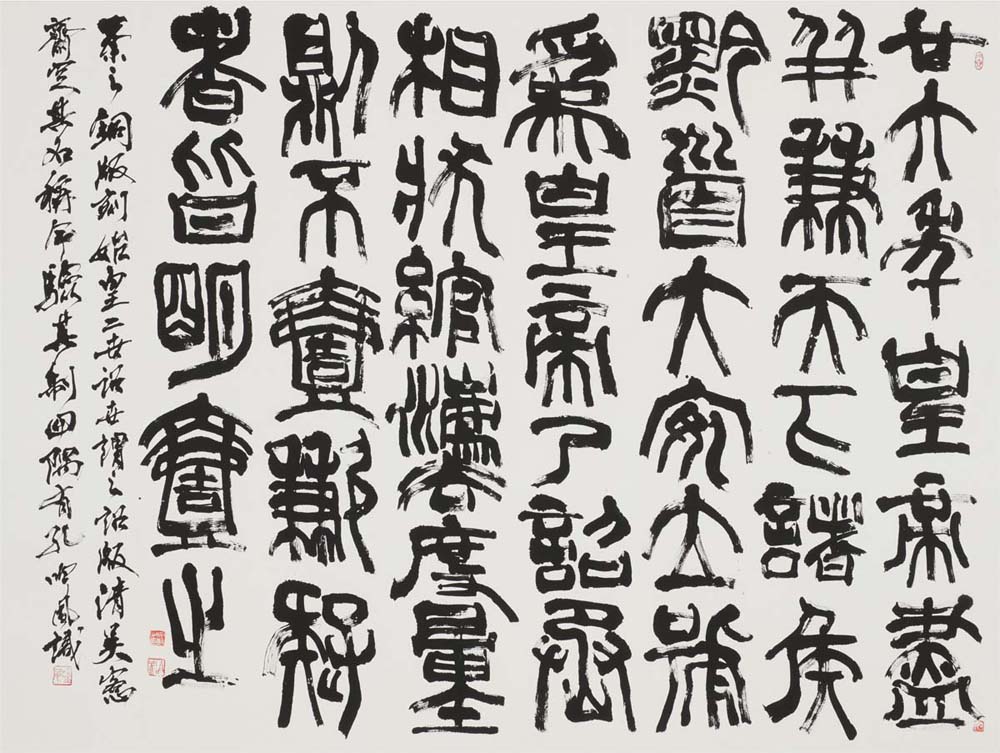 廿六年皇帝盡
并兼天下諸侯
黔首大安立號
爲皇帝乃詔丞
相狀綰灋度量
則不壹歉疑
者皆明壹之
秦之銅版刻始皇二世詔世謂之詔版清吴愙
齋定其名稱今驗其制四隅有孔識